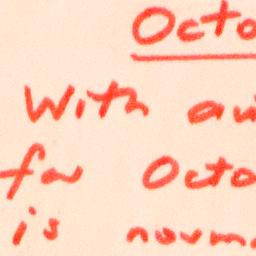 Octo
With au
for Octo
is norma